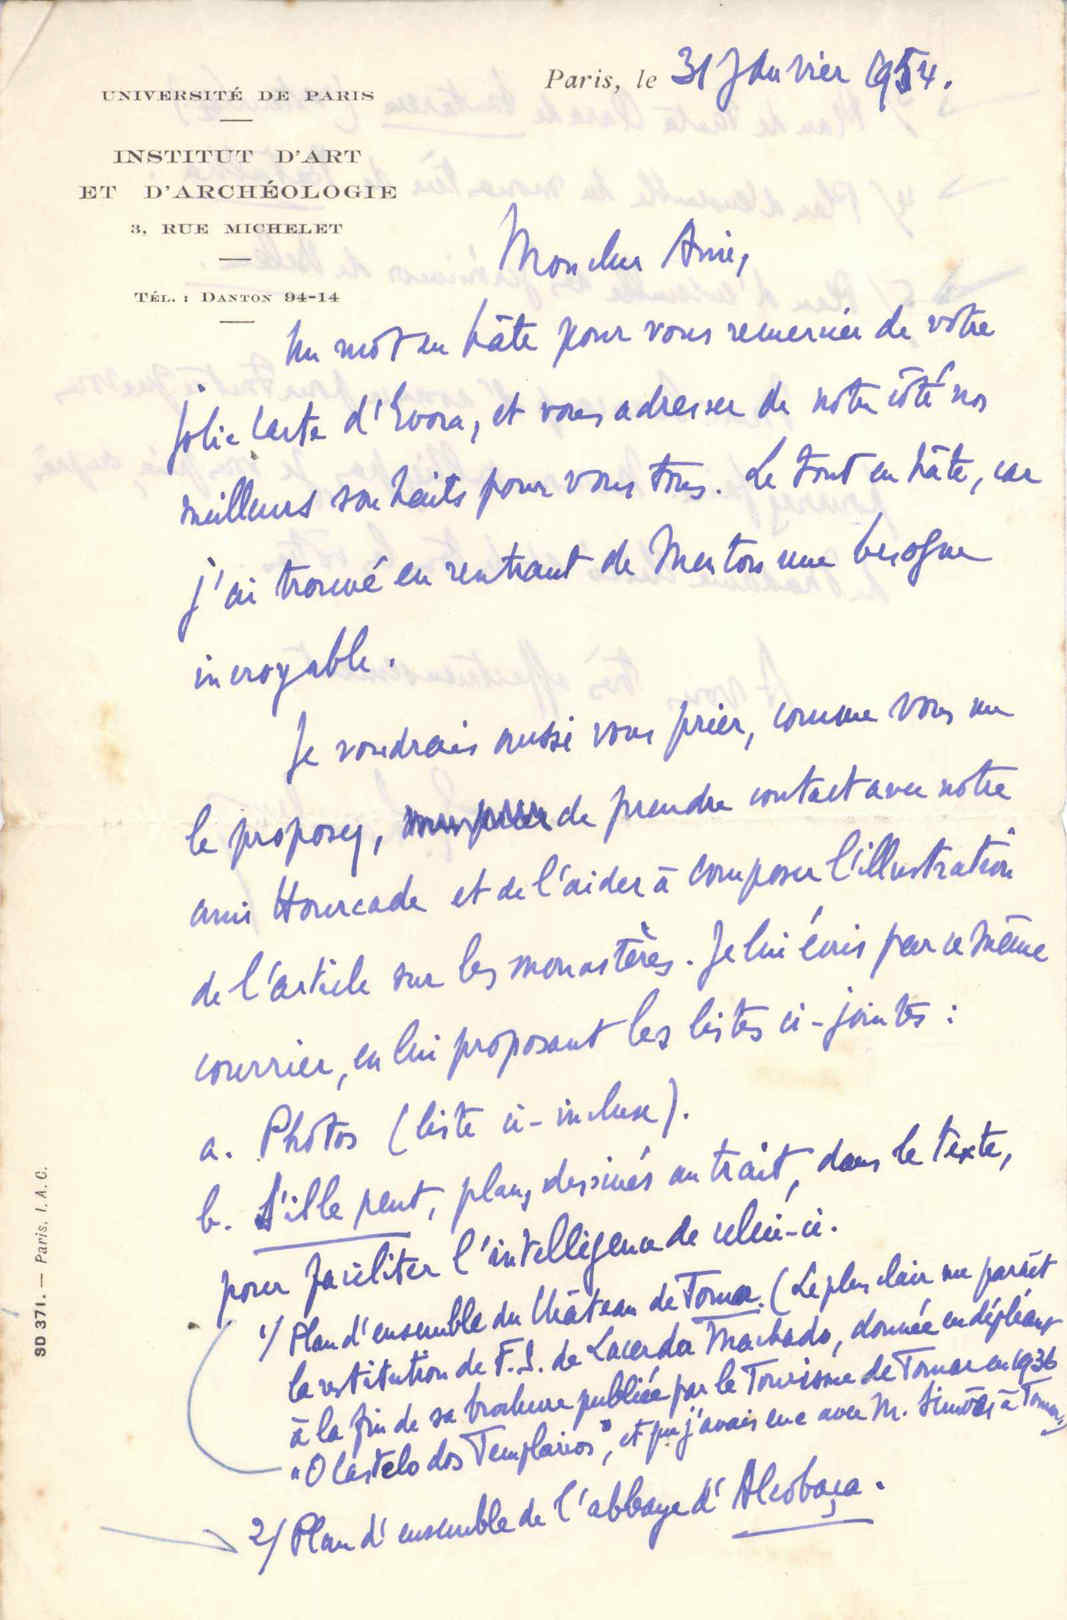 UNIVERSITÉ DE PARIS
INSTITUT D'ART
ET D'ARCHÉOLOGIE
3, RUE MICHELET
TÉL. : DANTON 94-14
Paris, le 31 Janvier 1954.
Mon cher Ami,
Un mot en hâte pour vous remercier de votre
jolie carte d'Evora, et vous adresser de notre côté nos
meilleurs souhaits pour vous tous. Le tout en hâte, car
j'ai trouvé en rentrant de Menton une besogne
incroyable.
Je voudrais aussi vous prier, comme vous me
le proposez, de prendre contact avec notre
ami Hourcade et de l'aider à composer l'illustration
de l'article sur les monastères. Je lui écris par ce même
courrier, en lui proposant les listes ci-jointes :
a. Photos (liste ci-incluse).
b. S'il le peut, plans dessinés au trait, dans le texte,
pour faciliter l'intelligence de celui-ci.
1/ Plan d'ensemble du Château de Tomar. (Le plus clair me paraît
la restitution de F. S. de Lacerda Machado, donnée en dépliant
à la fin de sa brochure publiée par le Tourisme de Tomar en 1936
"O Castelo dos Templarios", et que j'avais eue avec M. Simões à Tomar.
2/ Plan d'ensemble de l'abbaye d'Alcobaça.
SD 371. — Paris. I. A. C.